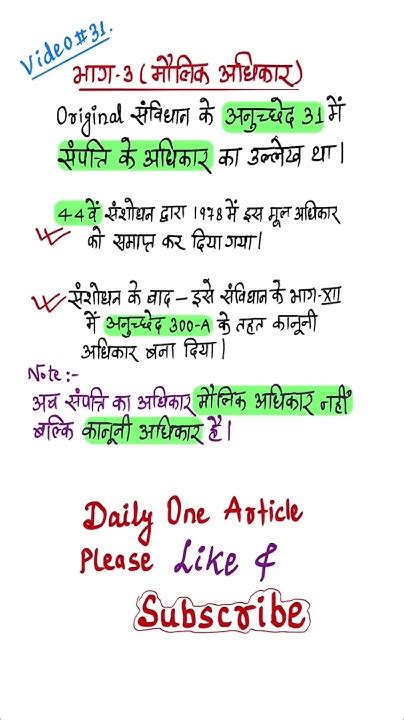 Video#31.
भाग-3 (मौलिक अधिकार)
Original संविधान के अनुच्छेद 31 में
संपत्ति के अधिकार का उल्लेख था।
44वें संशोधन द्वारा 1978 में इस मूल अधिकार
को समाप्त कर दिया गया।
संशोधन के बाद – इसे संविधान के भाग-XII
में अनुच्छेद 300-A के तहत कानूनी
अधिकार बना दिया।
Note:-
अब संपत्ति का अधिकार मौलिक अधिकार नहीं
बल्कि कानूनी अधिकार है।
Daily One Article
Please Like &
Subscribe